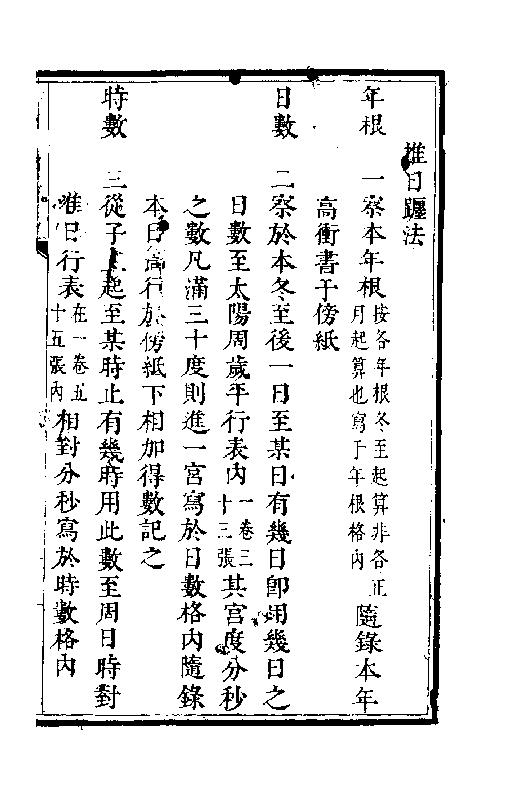 推日躔法
年根　一察本年根按各年根冬至起算非各正月起算也寫于年根格內隨錄本年
高衝書于傍紙
日數　二察於本冬至後一日至某日有幾日卽用幾日之
日數至太陽周歲平行表內一卷三十三張其宮度分秒
之數凡滿三十度則進一宮寫於日數格內隨錄
本日高行於傍紙下相加得數記之
時數　三從子正起至某時止有幾時用此數至周日時對
推日行表在一卷五十五張內相對分秒寫於時數格內